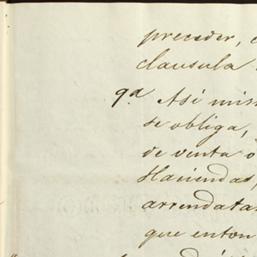 preceder, 
clausula
9ª Asi mis
se obliga,
de venta o
Haciendas,
arrendata
que enton